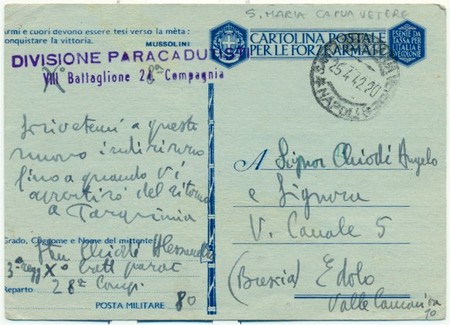 S. MARIA CAPUA VETERE
armi e cuori devono essere tesi verso la mèta:
conquistare la vittoria.
MUSSOLINI
DIVISIONE PARACADUTISTI
VIII Battaglione 28ª Compagnia
Xº
CARTOLINA POSTALE
PER LE FORZE ARMATE
ESENTE DA
TASSA PER
L'ITALIA
E COLONIE
25.4.42.20
NAPOLI
Scrivetemi a questo
nuovo indirizzo
fino a quando vi
avvertirò del ritorno
a Tarquinia
Grado, Cognome e Nome del mittente
Chiodi
3º regg Xº batt parac
Reparto 28ª Comp.
POSTA MILITARE 80
A Signor Chiodi Angelo
e Signora
V. Canale 5
(Brescia) Edolo
Valle Camonica